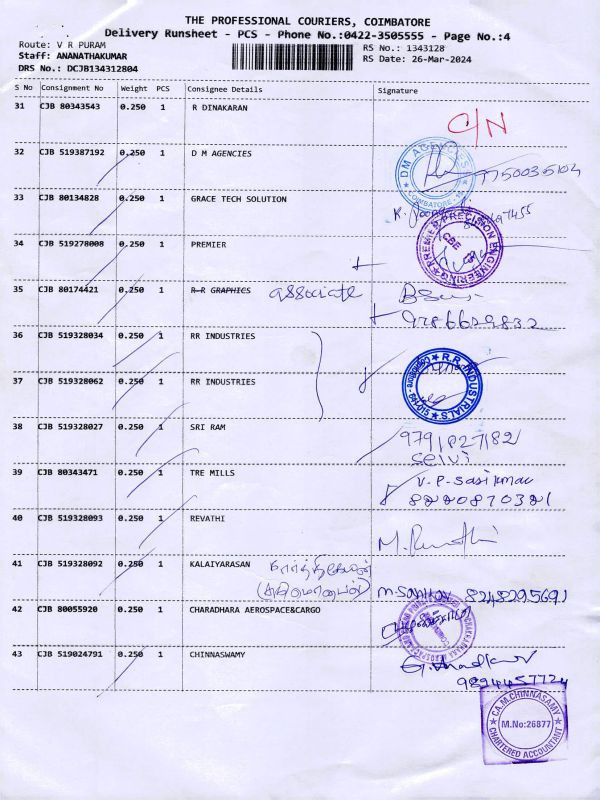 THE PROFESSIONAL COURIERS, COIMBATORE
Delivery Runsheet - PCS - Phone No.:0422-3505555 - Page No.:4
Route: V R PURAM
RS No.: 1343128
Staff: ANANATHAKUMAR
RS Date: 26-Mar-2024
DRS No.: DCJB134312804
S No Consignment No Weight PCS Consignee Details Signature
31 CJB 80343543 0.250 1 R DINAKARAN
C/N
32 CJB 519387192 0.250 1 D M AGENCIES
DM AGENCIES COIMBATORE
7750035104
33 CJB 80134828 0.250 1 GRACE TECH SOLUTION
34 CJB 519278008 0.250 1 PREMIER
PREMIER PRECISION ENGINEERING CBE
35 CJB 80174421 0.250 1 R R GRAPHICS associate
9786629832
36 CJB 519328034 0.250 1 RR INDUSTRIES
37 CJB 519328062 0.250 1 RR INDUSTRIES
R.R. INDUSTRIALS
38 CJB 519328027 0.250 1 SRI RAM 9791827182
Selvi
39 CJB 80343471 0.250 1 TRE MILLS V.P-Sasikmac
8220870321
40 CJB 519328093 0.250 1 REVATHI
41 CJB 519328092 0.250 1 KALAIYARASAN
8248295691
42 CJB 80055920 0.250 1 CHARADHARA AEROSPACE&CARGO
43 CJB 519024791 0.250 1 CHINNASWAMY
9894457724
CA. M. CHINNASAMY
M.No:26877
CHARTERED ACCOUNTANT